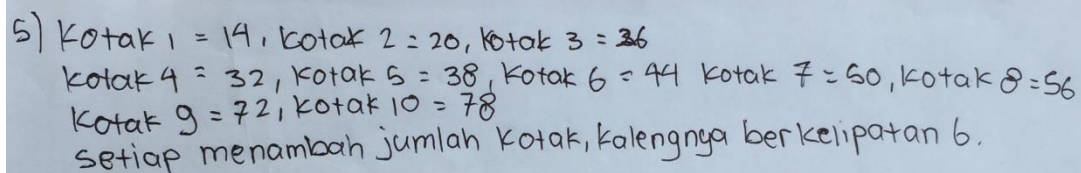 5) Kotak 1 = 14, kotak 2 = 20, Kotak 3 = 26
kotak 4 = 32, kotak 5 = 38, kotak 6 = 44 kotak 7 = 50, kotak 8 = 56
Kotak 9 = 72, kotak 10 = 78
setiap menambah jumlah kotak, kalengnya berkelipatan 6.